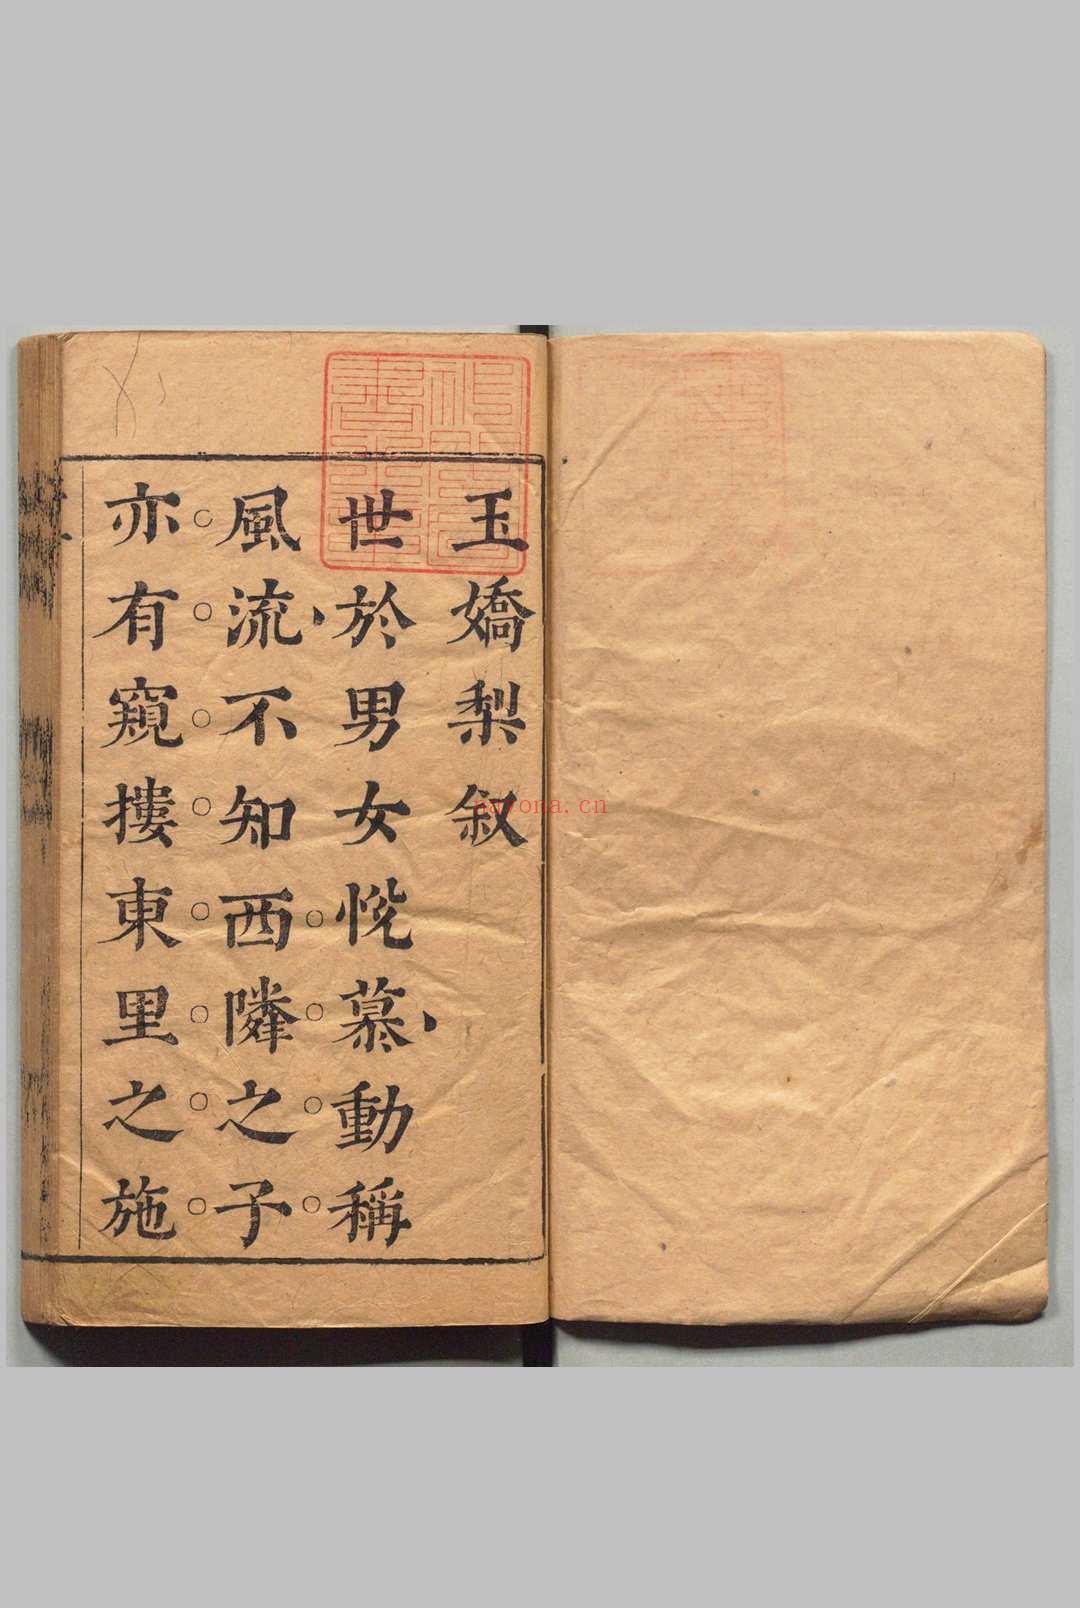 玉嬌梨叙
世於男女悅慕動稱
風流不知西隣之子
亦有窺摟東里之施
nayona.cn